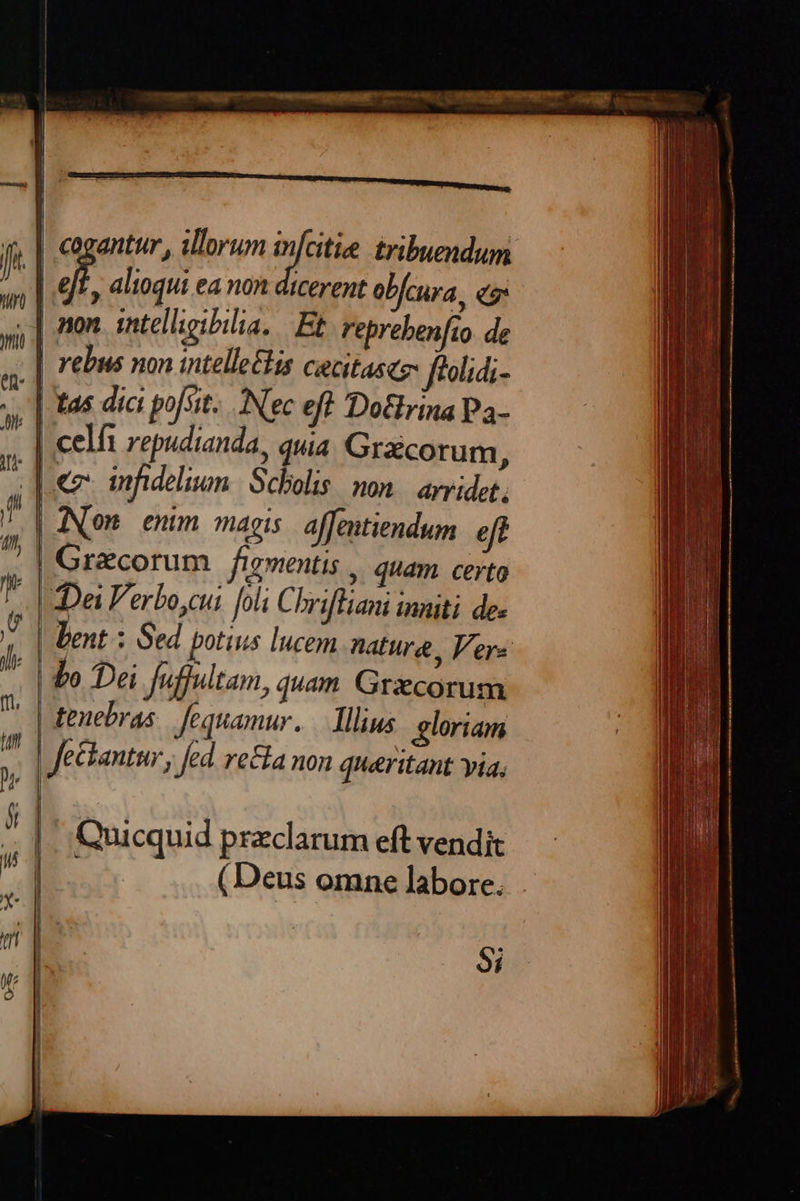 cogantur, illorum inſcitiæ tribuendum
eſt, alioqui ea non dicerent obſcura, &
non intelligibilia. Et reprehenſio de
rebus non intellectis cæcitas & ſtolidi-
tas dici poſsit. Nec eſt Doctrina Pa-
celſi repudianda, quia Græcorum,
& infidelium Scholis non arridet.
Non enim magis aſſentiendum eſt
Græcorum figmentis, quam certo
Dei Verbo, cui ſoli Chriſtiani inniti de-
bent : Sed potius lucem naturæ, Ver-
bo Dei ſuffultam, quam Græcorum
tenebras ſequamur. Illius gloriam
ſectantur, ſed recta non quæritant via.
Quicquid præclarum eſt vendit
(Deus omne labore.
Si